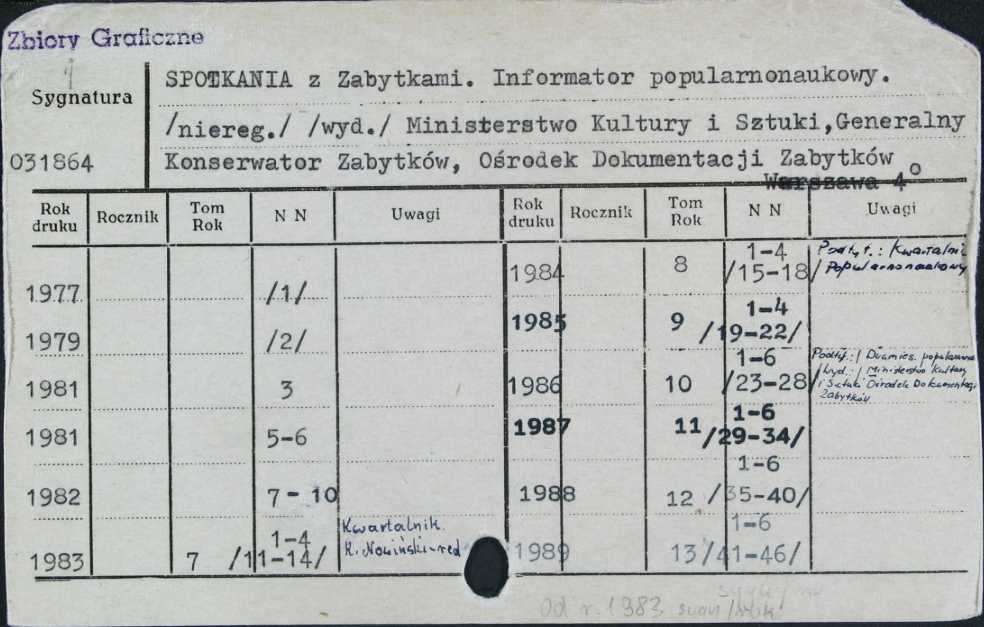 Zbiory Graficzne
Sygnatura
031864
SPOTKANIA z Zabytkami. Informator popularnonaukowy.
/niereg./ /wyd./ Ministerstwo Kultury i Sztuki,Generalny
Konserwator Zabytków, Ośrodek Dokumentacji Zabytków
Warszawa 4°
Rok druku Rocznik Tom Rok N N Uwagi
1977 /1/
1979 /2/
1981 3
1981 5-6
1982 7-10
1983 7 1-4 /11-14/ Kwartalnik R. Nowiński-red
Rok druku Rocznik Tom Rok N N Uwagi
1984 8 1-4 /15-18/ Podtyt.: Kwartalnik Popularnonaukowy
1985 9 1-4 /19-22/
1986 10 1-6 /23-28/ Podtyt.:/ Dwumies. /Wyd.:/ Ministerstwo Kultury i Sztuki Ośrodek Dokumentacji Zabytków
1987 11 1-6 /29-34/
1988 12 1-6 /35-40/
1989 13 1-6 /41-46/
Od r. 1983